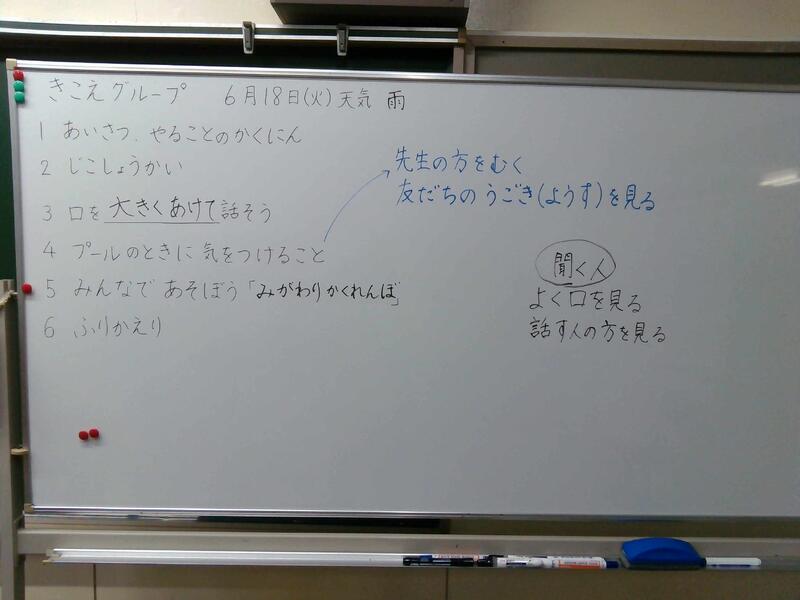 きこえグループ 6月18日(火) 天気 雨
1 あいさつ、やることのかくにん
2 じこしょうかい
3 口を大きくあけて話そう
4 プールのときに気をつけること
先生の方をむく
友だちのうごき(ようす)を見る
5 みんなであそぼう「みがわりかくれんぼ」
6 ふりかえり
聞く人
よく口を見る
話す人の方を見る